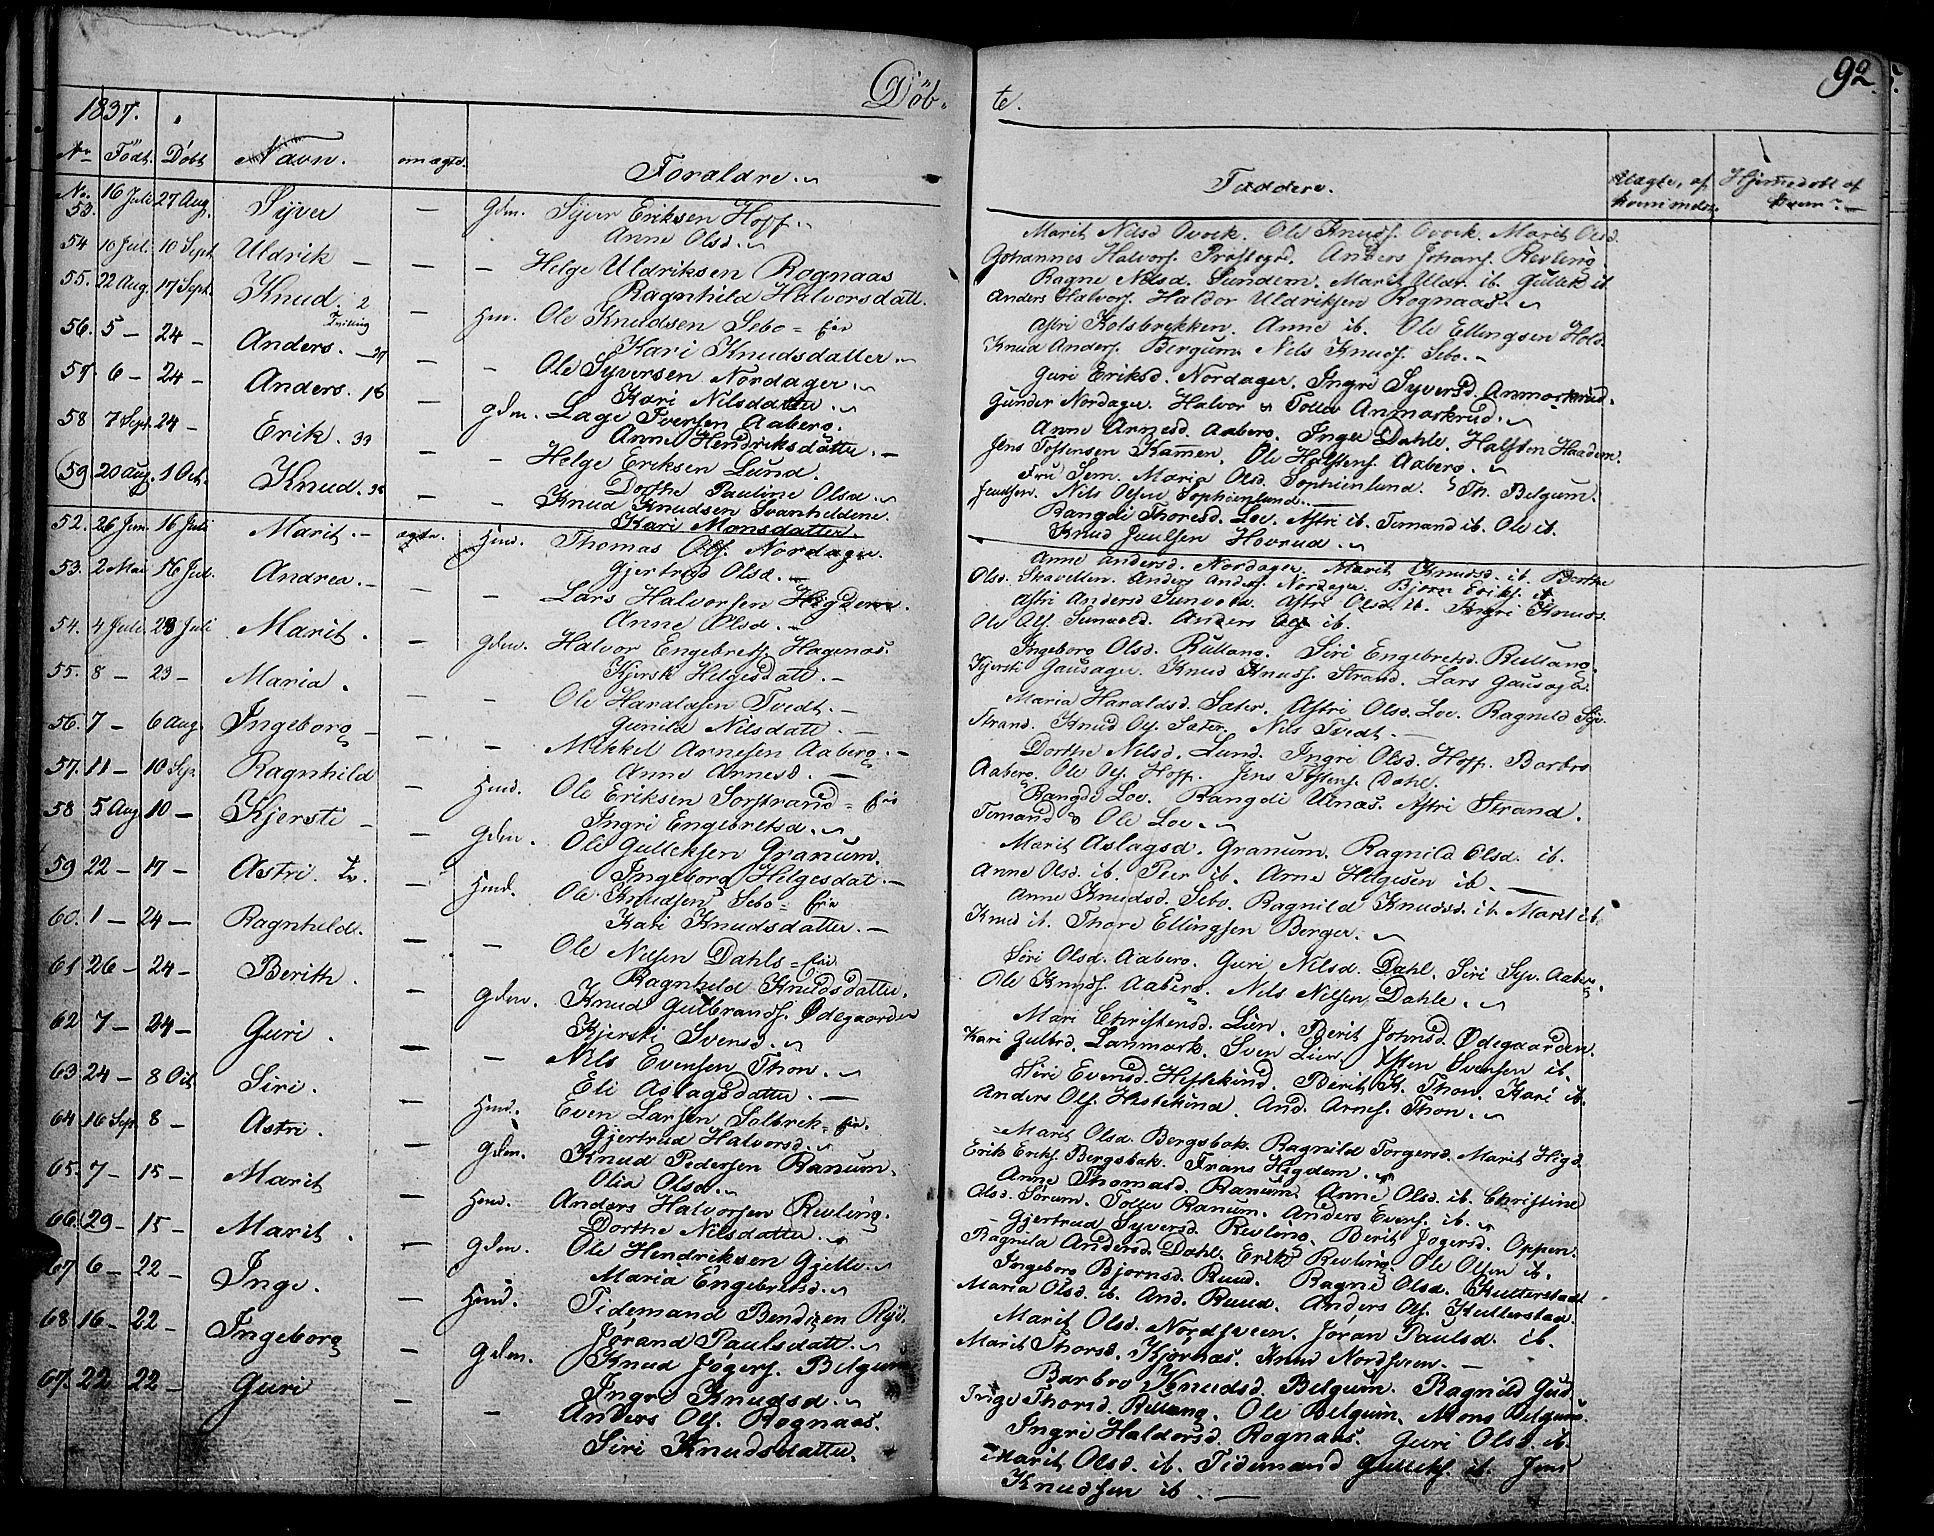 Döb-
te.
92.
1837.
No Födt. Döbt Navn. om ægte. Forældre.
Faddere. Uægte, af Hjemmedöbt af
hvem?
No 53. 16 Juli 27 Aug. Syver — Gdm. Syver Eriksen Hoff
Anne Olsd.
54 10 Jul. 10 Sept. Uldrik — — — Helge Uldriksen Rognaas
Ragnhild Halvorsdatt.
55. 22 Aug. 17 Sept. Knud. 2 Tvilling — Hm. Ole Knudsen Sebo
Kari Knudsdatter.
56. 5 — 24 — Anders. — — — Ole Syversen Nordager.
Kari Nilsdatter
57. 6 — 24 — Anders. 16 — Gdm. Lage Iversen Aaberg.
Anne Hendriksdatter. —
58 7 Sept. 24 — Erik. 33 — — Helge Eriksen Lund.
Dorthe Pauline Olsd.
59 20 Aug. 1 Oct. Knud. — — Knud Knudsen Svanhildene.
Kari Monsdatter.
52. 26 Jun. 16 Juli Marit. — ægte. Hmd. Thomas Ols. Nordager.
Gjertrud Olsd.
53. 2 Mai 16 Jul. Andrea. — — — Lars Halvorsen Higdem.
Anne Olsd. —
54. 4 Juli. 23 Juli Marit. — Gdm. Halvor Engebrets. Hagenas.
Kjersti Helgesdatt. —
55. 8 — 23 — Maria. — — Ole Haraldsen Tvedt. —
Gunild Nilsdatt. —
56. 7 — 6 Aug. Ingeborg — — — Mikkel Arnesen Aaberg. —
Anne Arnesd. —
57. 11 — 10 Sep. Ragnhild — Hmd. Ole Eriksen Sorstrand
Ingri Engebretsd.
58 5 Aug 10 — Kjersti — — Gdm. Ole Gulleksen Granum.
Ingeborg Helgesdat. —
59 22 — 17 — Astri. Tv. — Hmd. Ole Knudsen Sebo
Kari Knudsdatter. —
60. 1 — 24 — Ragnhild. — — Ole Nilsen Dahls
Ragnhild Knudsdatter.
61 26 — 24 — Berith. — Gdm. Knud Gulbrands. Ødegaarden
Kjersti Svensd.
62 7 — 24 — Guri. — — Nils Evensen Thon.
Eli Aslagsdatter. —
63. 24 — 8 Oct. Siri. — Hmd. Even Larsen Solbrek
Gjertrud Halvorsd.
64 16 Sept. 8 — Astri. — Gdm. Knud Pedersen Ranum.
Olia Olsd.
65. 7 — 15 — Marit — Hmd. Anders Halvorsen Revling.
Dorthe Nilsdatter.
66. 29 — 15 — Marit. — Gdm. Ole Hendriksen Gjelle.
Maria Engebretsd.
67 6 — 22 — Inge. — Hmd. Tidemand Bendixen Rye.
Jørand Paulsdatt.
68 16 — 22 — Ingeborg — Gdm. Knud Jøgers. Belgum
Ingri Knudsd.
67. 22 22 — Guri — — Anders Ols. Rognaas.
Siri Knudsdatter.
Marit Nilsd Ovock. Ole Knuds. Ovock. Marit Olsd.
Johannes Halvors. Prøstegrd. Anders Johans. Revling.
Ragne Nilsd. Sundem. Marit Uldr. ib. Gullek ib
Anders Halvors. Haldor Uldriksen Rognaas.
Astri Kolsbrekken. Anne ib. Ole Ellingsen Hold.
Knud Anders. Bergum. Nils Knuds. Sebo. —
Guri Eriksd. Nordager. Ingri Syversd. Anmarkrud.
Gunder Nordager. Halvor & Tollev Anmarkrud.
Anne Arnesd. Aaberg. Inger Dahle. Halften Haadem.
Jens Tostensen Kamen. Ole Halftens. Aaberg.
Fru Sem. Maria Olsd. Sophienlund. Th. Belgum.
Nils Olsen Sophienlund.
Rangdi Thoresd. Loe. Astri ib. Temand ib. Ole ib.
Knud Juulsen Hovrud.
Anne Andersd. Nordager. Marit Knudsd. ib. Berthe
Olsd. Skavellen. Anders Anders. Nordager. Bjørn Eriks. ib
Astri Andersd Sunvold. Astri Olsd. ib. Ingri Knuds.
Ole Ols. Sunvold. Anders Ols ib.
Ingeborg Olsd. Rullang. Siri Engebretsd. Rullang.
Kjersti Gausager. Knud Knuds. Strand. Lars Gausager.
Maria Haraldsd. Sæter. Astri Olsd. Loe. Ragnild Syv.
Strand. Knud Ols. Sæter. Nils Tvedt. —
Dorthe Nilsd. Lund. Ingri Olsd. Hoff. Barbro
Aaberg. Ole Ols. Hoff. Jens Tostens. Dahl.
Rangdi Loe. Rangdi Ulnas. Astri Strand.
Temand & Ole Loe.
Marit Aslagsd. Granum. Ragnild Olsd. ib.
Anne Olsd. ib. Peer ib. Arne Helgesen ib. —
Anne Knudsd. Sebo. Ragnild Knudsd. ib. Marit ib.
Knud ib. Thore Ellingsen Berger.
Siri Olsd. Aaberg. Guri Nilsd. Dahl. Siri Syv. Aaberg.
Ole Knuds. Aaberg. Nils Nilsen Dahle.
Mari Christensd. Lien. Berit Johnsd. Ødegaarden.
Kari Gulbrd. Lanmark. Sven Lien. Iften Svensen ib.
Siri Evensd. Heftekind. Berit K. Thon. Kari ib.
Anders Ols. Hestekind. And. Arnes. Thon.
Marit Olsd. Bergsbak. Ragnild Torgersd. Marit Higd.
Erik Eriks. Bergsbak. Frans Higdem.
Anne Thomasd. Ranum. Anne Olsd. ib. Christine
Olsd. Sørum. Tollev Ranum. Anders Evens. ib.
Gjertrud Syversd. Revling. Berit Jogersd. Oppen.
Ragnild Andersd. Dahl. Erik Revling. Ole Olsen ib.
Ingeborg Bjornsd. Ruud. Ragne Olsd. Kullerstad
Maria Olsd. ib. And. Ruud. Anders Ols. Kullerstad.
Marit Olsd. Nordsveen. Jøran Paulsd. ib.
Marit Thorsd. Kjørnas. Knud Nordsveen. —
Barbro Knudsd. Belgum. Ragnild Gud.
Inge Thorsd. Rullang. Ole Belgum. Mons Belgum.
Ingri Haldorsd. Rognaas. Guri Olsd. ib.
Marit Olsd. ib. Tidemand Gulleks. ib. Jens
Knudsen ib. —